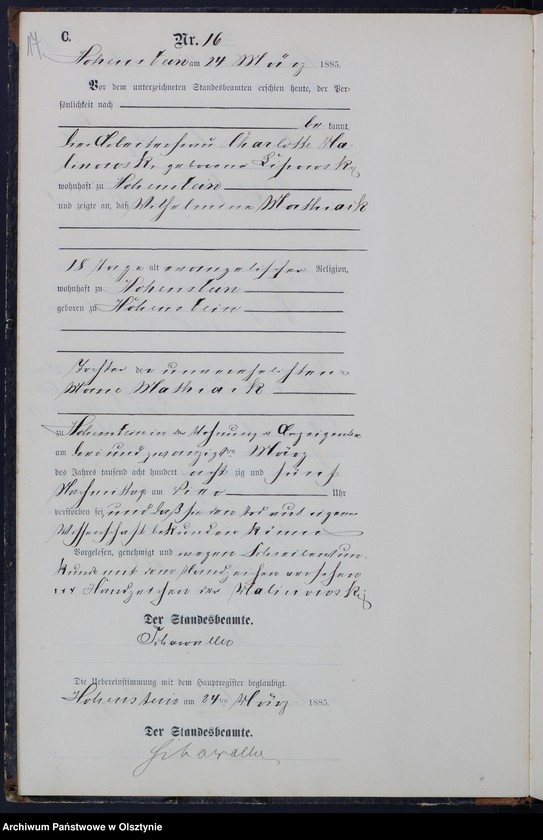 17.
C.
Nr. 16
Hohenstein am 24 März 1885.
Vor dem unterzeichneten Standesbeamten erschien heute, der Per-
sönlichkeit nach
be kannt,
die Charlotte Ma-
linowski geborene
wohnhaft zu Hohenstein
und zeigte an, daß Wilhelmine Mathiaik
18 Tage alt evangelischer Religion,
wohnhaft zu Hohenstein
geboren zu Hohenstein
Tochter der unverehelichten
Marie Mathiaik
zu Hohenstein in der Wohnung der Anzeigenden
am drei und zwanzigsten März
des Jahres tausend acht hundert acht zig und fünf
Nachmittags um vier Uhr
verstorben sei, und daß sie den Tod aus eigener
Wissenschaft bekunden könne
Vorgelesen, genehmigt und wegen Schreibensun-
kunde mit dem Handzeichen versehen
xxx Handzeichen der Malinowski
Der Standesbeamte.
Schawaller
Die Uebereinstimmung mit dem Hauptregister beglaubigt.
Hohenstein am 24ten März 1885.
Der Standesbeamte.
Schawaller
Archiwum Państwowe w Olsztynie